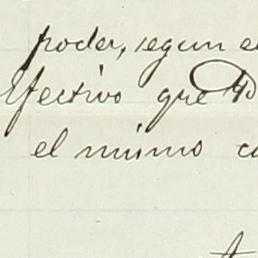 poder, segun e
Efectivo que
el mismo c